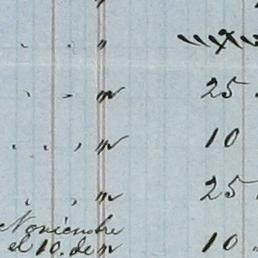 "
" 25
" 10
" 25
Noviembre
el 10. de " 10